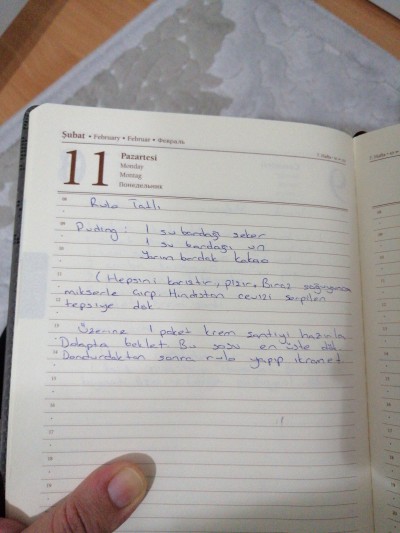 Şubat • February • Februar • Февраль
11
Pazartesi
Monday
Montag
Понедельник
08 Rulo Tatlı
09 Puding: 1 su bardağı şeker
1 su bardağı un
10 Yarım bardak kakao
11 (Hepsini karıştır, pişir. Biraz soğuyunca
mikserle çırp. Hindistan cevizi serpilen
12 tepsiye dök
13 Üzerine 1 paket krem şantiyi hazırla
Dolapta beklet. Bu sosu en üste dök
14 Dondurduktan sonra rulo yapıp ikram et.
15
16
17
18
19